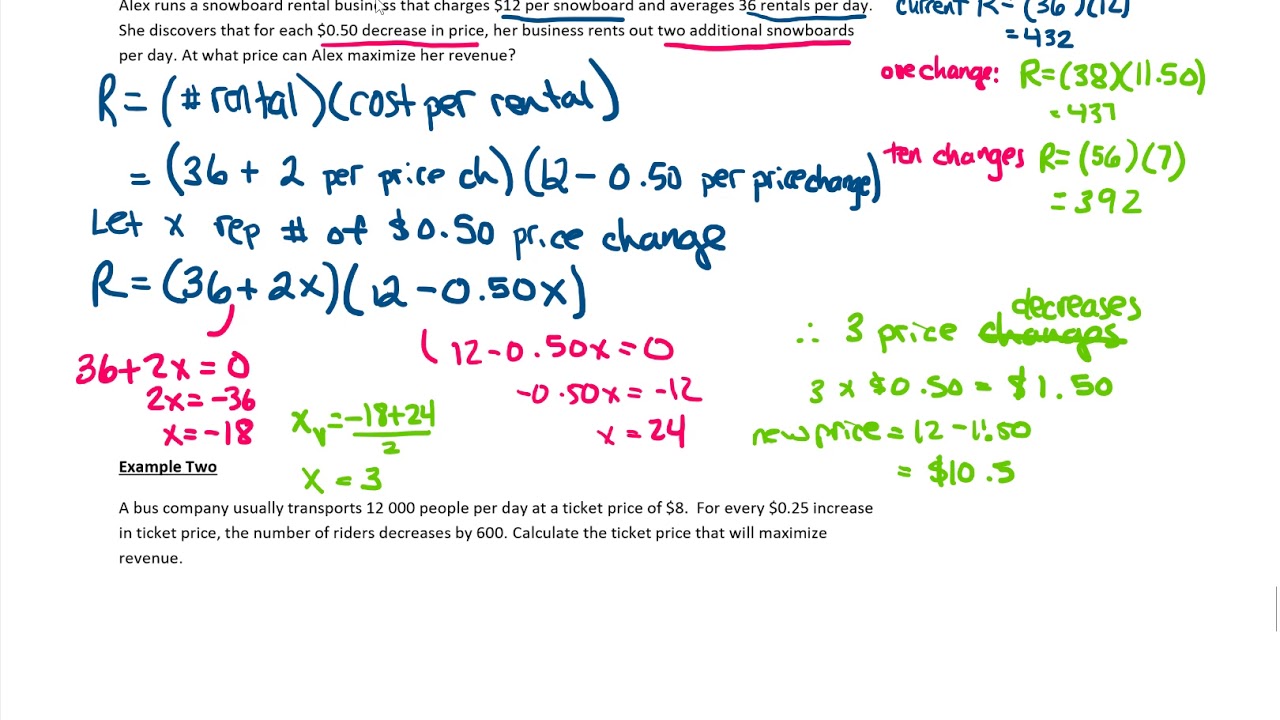 Alex runs a snowboard rental business that charges $12 per snowboard and averages 36 rentals per day.
She discovers that for each $0.50 decrease in price, her business rents out two additional snowboards
per day. At what price can Alex maximize her revenue?
current R = (36)(12)
= 432
one change: R=(38)(11.50)
= 437
ten changes R=(56)(7)
= 392
R = (# rental)(cost per rental)
= (36 + 2 per price ch)(12 - 0.50 per price change)
Let x rep # of $0.50 price change
R = (36 + 2x)(12 - 0.50x)
36+2x = 0
2x = -36
x = -18
12-0.50x = 0
-0.50x = -12
x = 24
xv = -18+24
2
x = 3
∴ 3 price changes decreases
3 x $0.50 = $1.50
new price = 12 - 1.50
= $10.5
Example Two
A bus company usually transports 12 000 people per day at a ticket price of $8. For every $0.25 increase
in ticket price, the number of riders decreases by 600. Calculate the ticket price that will maximize
revenue.